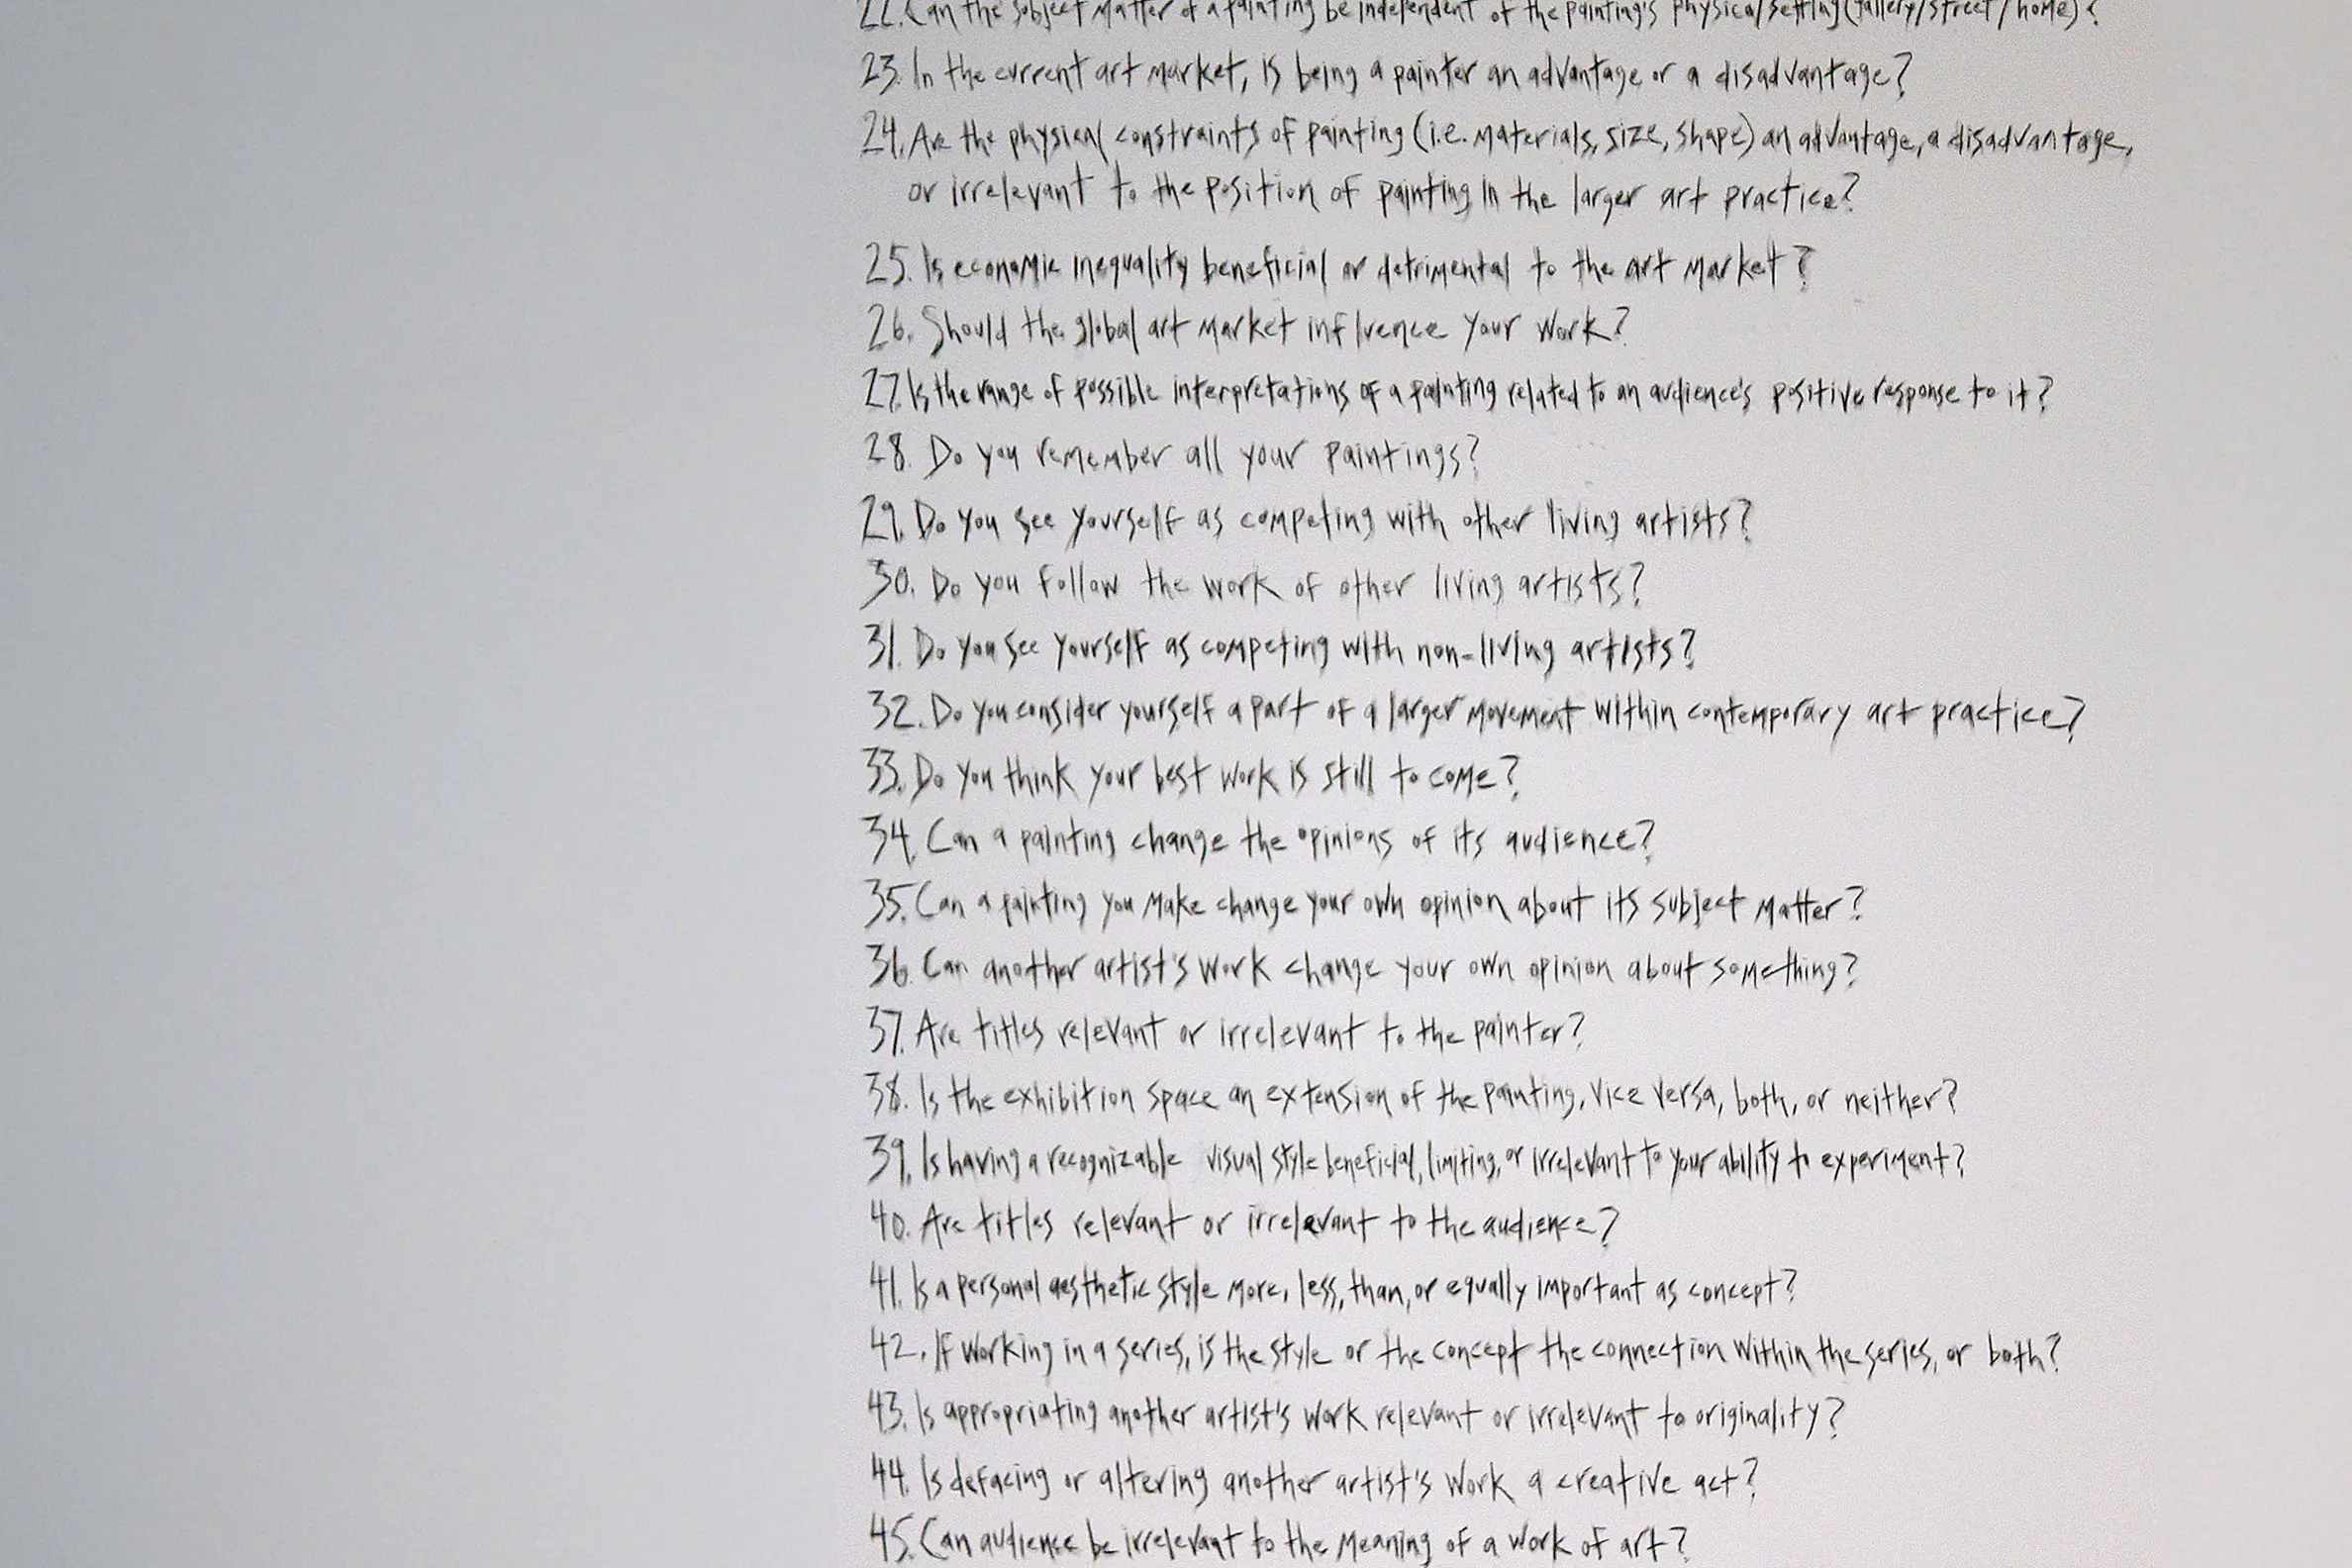 22. Can the subject matter of a painting be independent of the painting's physical setting (gallery/street/home)?
23. In the current art market, is being a painter an advantage or a disadvantage?
24. Are the physical constraints of painting (i.e. materials, size, shape) an advantage, a disadvantage,
or irrelevant to the position of painting in the larger art practice?
25. Is economic inequality beneficial or detrimental to the art market?
26. Should the global art market influence your work?
27. Is the range of possible interpretations of a painting related to an audience's positive response to it?
28. Do you remember all your paintings?
29. Do you see yourself as competing with other living artists?
30. Do you follow the work of other living artists?
31. Do you see yourself as competing with non-living artists?
32. Do you consider yourself a part of a larger movement within contemporary art practice?
33. Do you think your best work is still to come?
34. Can a painting change the opinions of its audience?
35. Can a painting you make change your own opinion about its subject matter?
36. Can another artist's work change your own opinion about something?
37. Are titles relevant or irrelevant to the painter?
38. Is the exhibition space an extension of the painting, vice versa, both, or neither?
39. Is having a recognizable visual style beneficial, limiting, or irrelevant to your ability to experiment?
40. Are titles relevant or irrelevant to the audience?
41. Is a personal aesthetic style more, less, than, or equally important as concept?
42. If working in a series, is the style or the concept the connection within the series, or both?
43. Is appropriating another artist's work relevant or irrelevant to originality?
44. Is defacing or altering another artist's work a creative act?
45. Can audience be irrelevant to the meaning of a work of art?